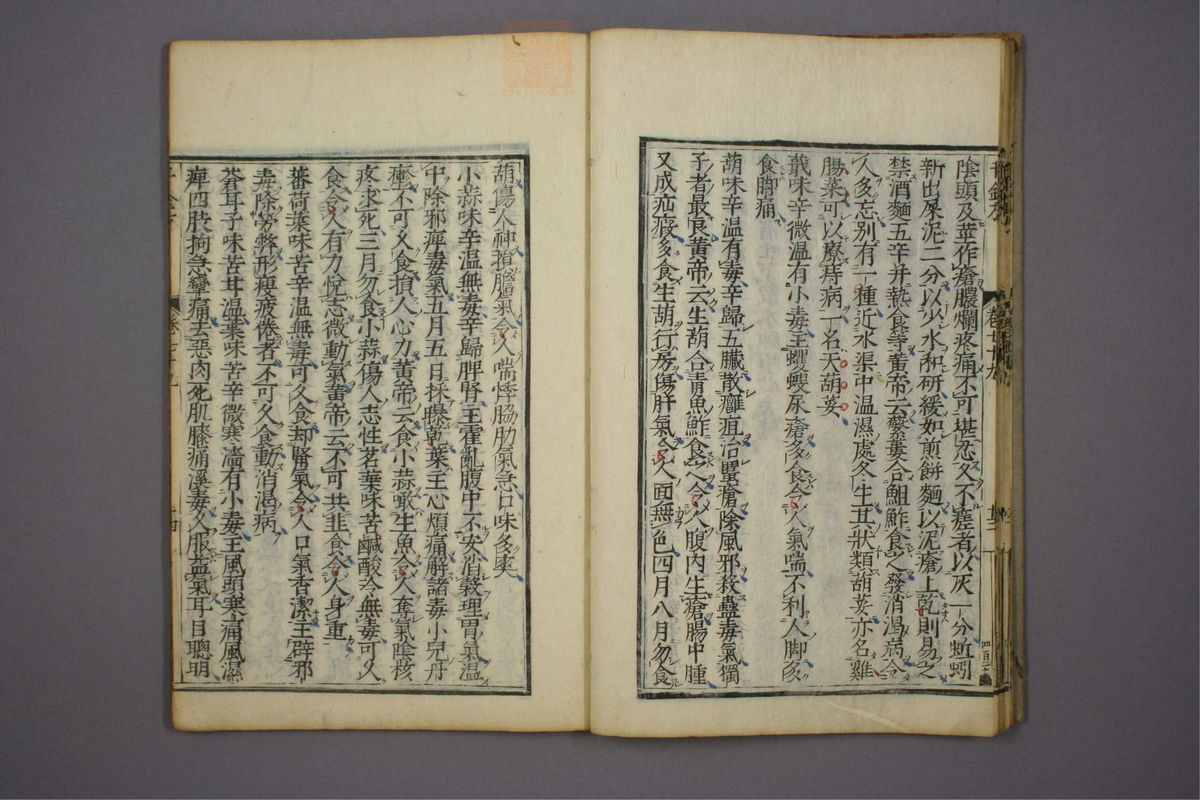 千金方
卷七十九
廿三
陰頭及莖作瘡膿爛疼痛不可堪忍久不瘥者以灰一分蚯蚓
新出屎泥二分以少水和研緩如煎餅麵以泥瘡上乾則易之
禁酒麵五辛并熱食等黃帝云蘩蔞合䱉鮓食之發消渴病令
人多忘別有一種近水渠中溫濕處冬生其狀類胡荽亦名雞
腸菜可以療痔病一名天胡荽
蕺味辛微溫有小毒主蠼螋尿瘡多食令人氣喘不利人脚多
食脚痛
葫味辛溫有毒辛歸五臟散癰疽治䘌瘡除風邪殺蠱毒氣獨
子者最良黃帝云生葫合青魚鮓食之令人腹內生瘡腸中腫
又成疝瘕多食生葫行房傷肝氣令人面無色四月八月勿食
葫傷人神損膽氣令人喘悸脇肋氣急口味多爽
小蒜味辛溫無毒辛歸脾腎主霍亂腹中不安消穀理胃氣溫
中除邪痺毒氣五月五日採曝乾葉主心煩痛解諸毒小兒丹
瘮不可久食損人心力黃帝云食小蒜噉生魚令人奪氣陰核
疼求死三月勿食小蒜傷人志性茗葉味苦鹹酸冷無毒可久
食令人有力悅志微動氣黃帝云不可共韭食令人身重
蕃荷葉味苦辛溫無毒可久食却腎氣令人口氣香潔主辟邪
毒除勞弊形瘦疲倦者不可久食動消渴病
蒼耳子味苦甘溫葉味苦辛微寒濇有小毒主風頭寒痛風濕
痺四肢拘急攣痛去惡肉死肌膝痛溪毒久服益氣耳目聰明